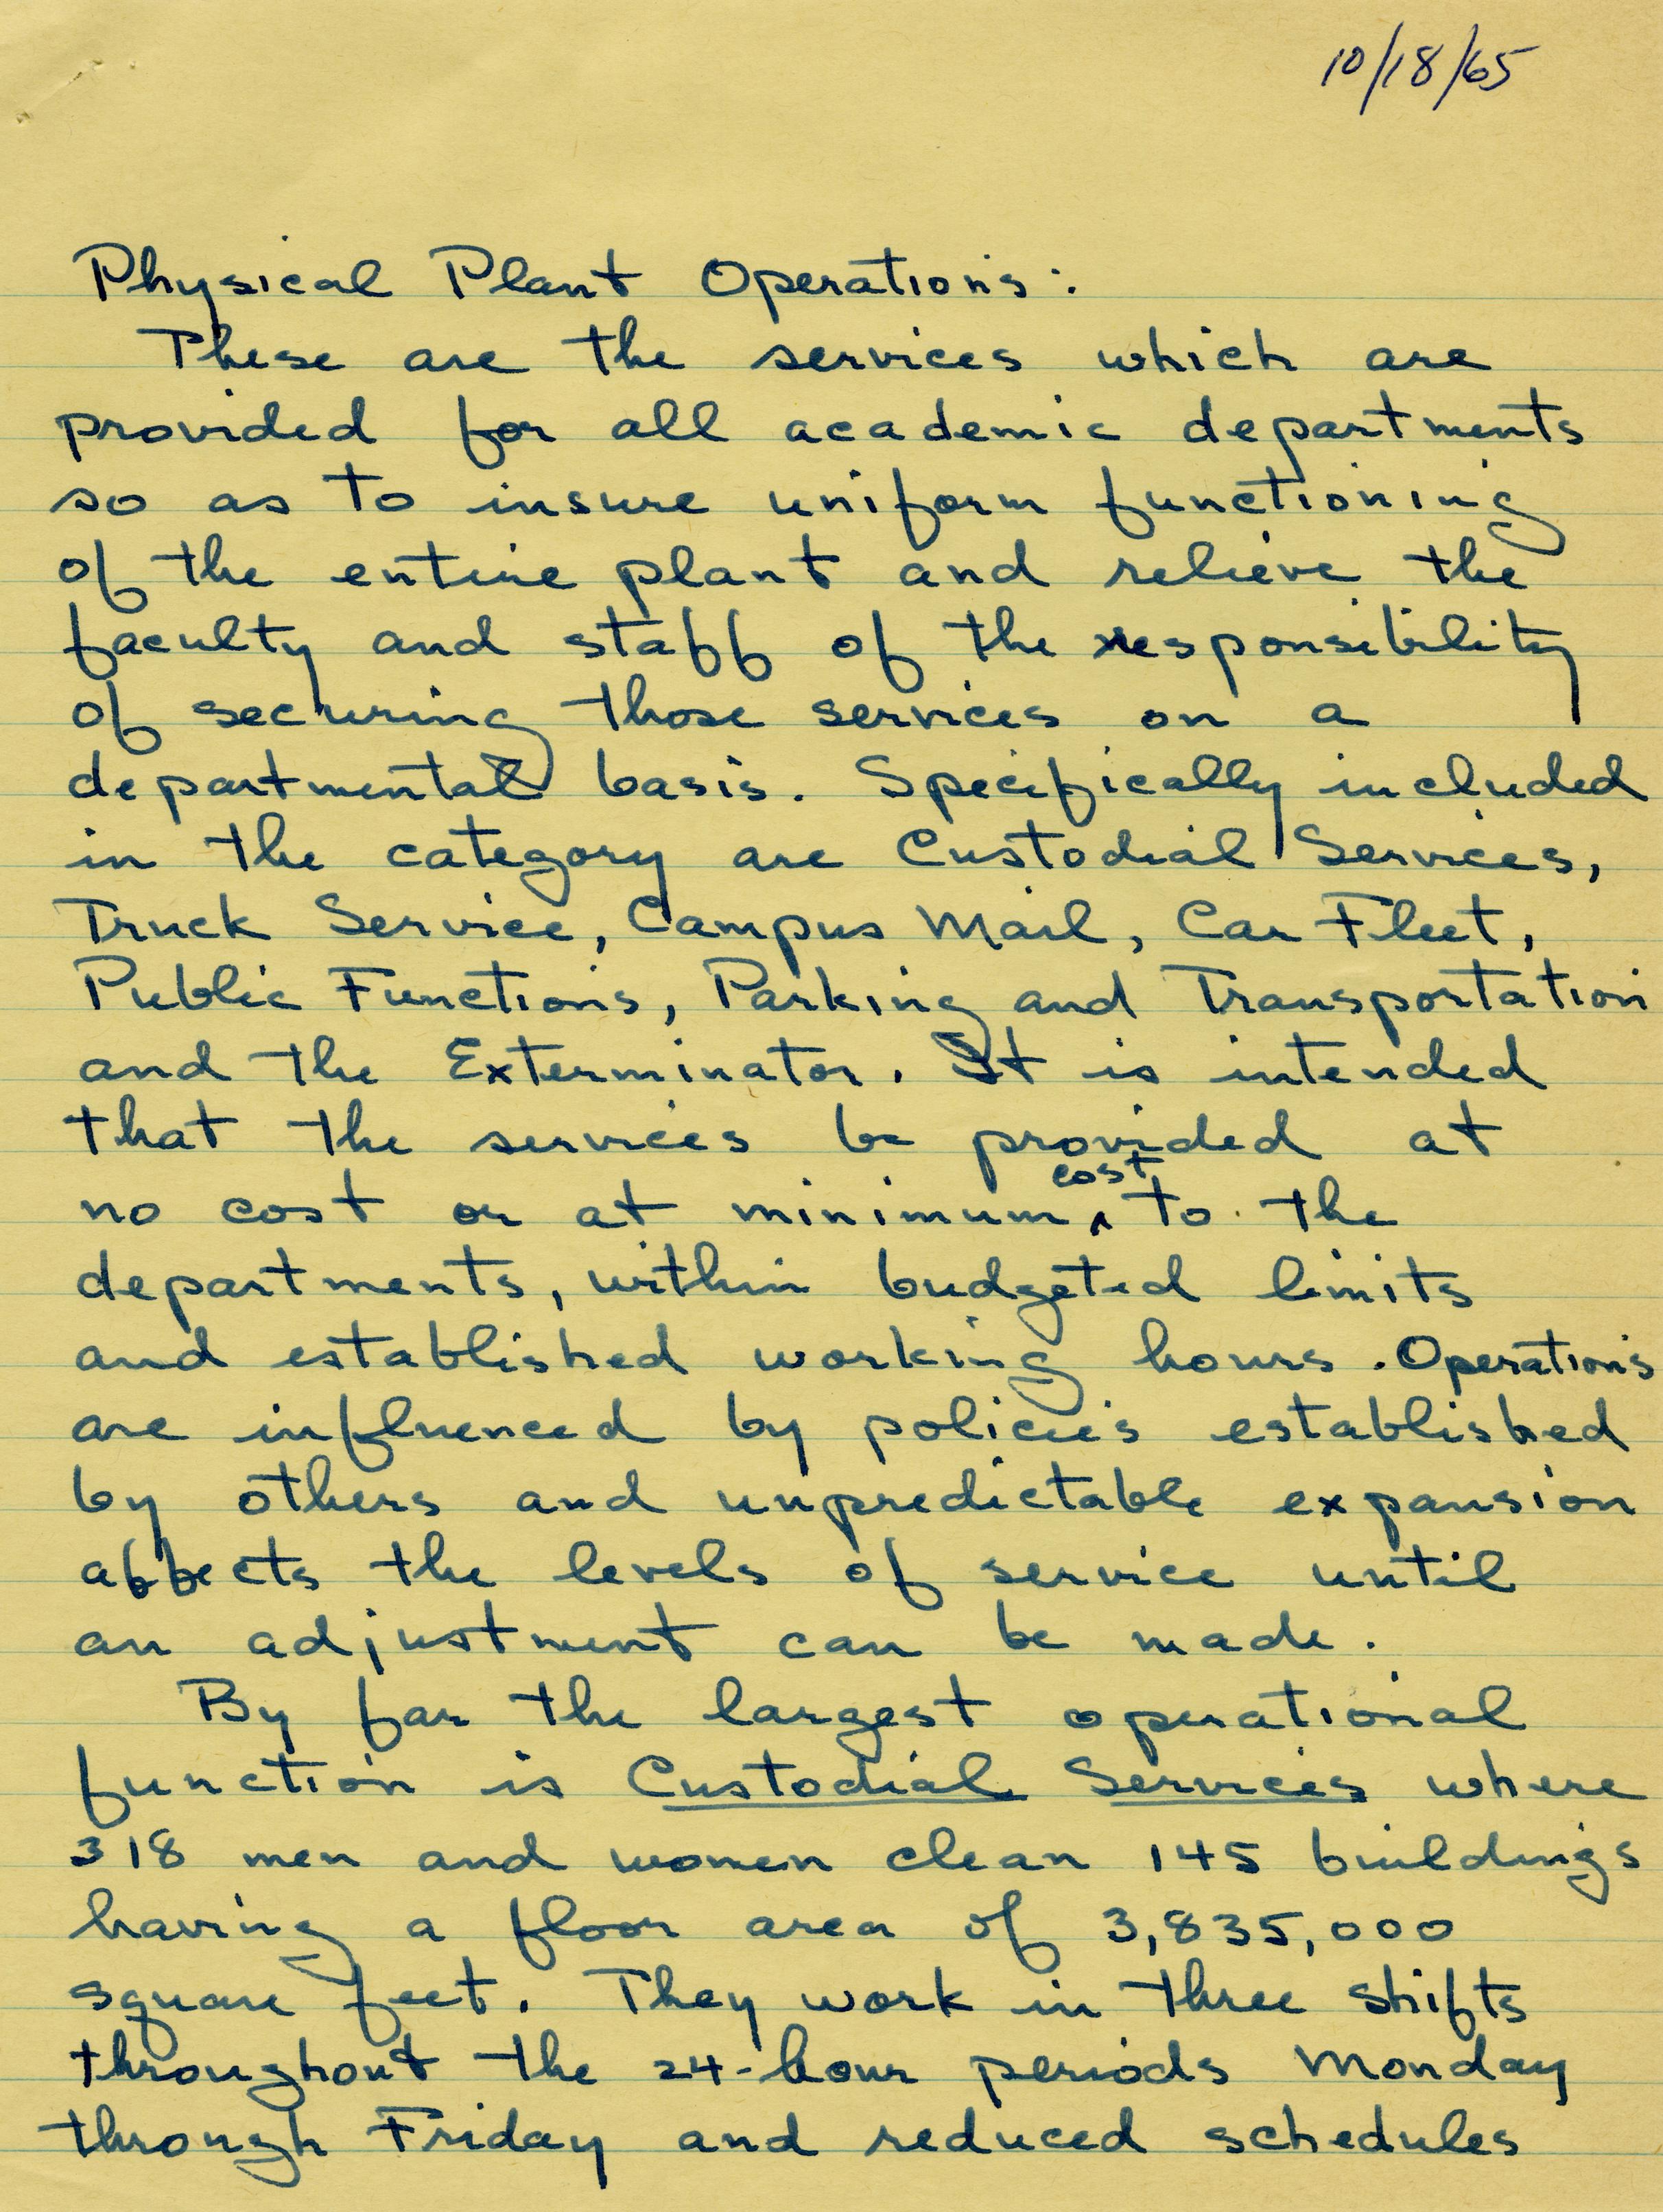 10/18/65
Physical Plant Operations:
These are the services which are
provided for all academic departments
so as to insure uniform functioning
of the entire plant and relieve the
faculty and staff of the responsibility
of securing those services on a
departmental basis. Specifically included
in the category are Custodial Services,
Truck Service, Campus Mail, Car Fleet,
Public Functions, Parking and Transportation
and the Exterminator. It is intended
that the services be provided at
cost
no cost or at minimum ^ to the
departments, within budgeted limits
and established working hours. Operations
are influenced by policies established
by others and unpredictable expansion
affects the levels of service until
an adjustment can be made.
By far the largest operational
function is Custodial Services where
318 men and women clean 145 buildings
having a floor area of 3,835,000
square feet. They work in three shifts
throughout the 24-hour periods Monday
through Friday and reduced schedules